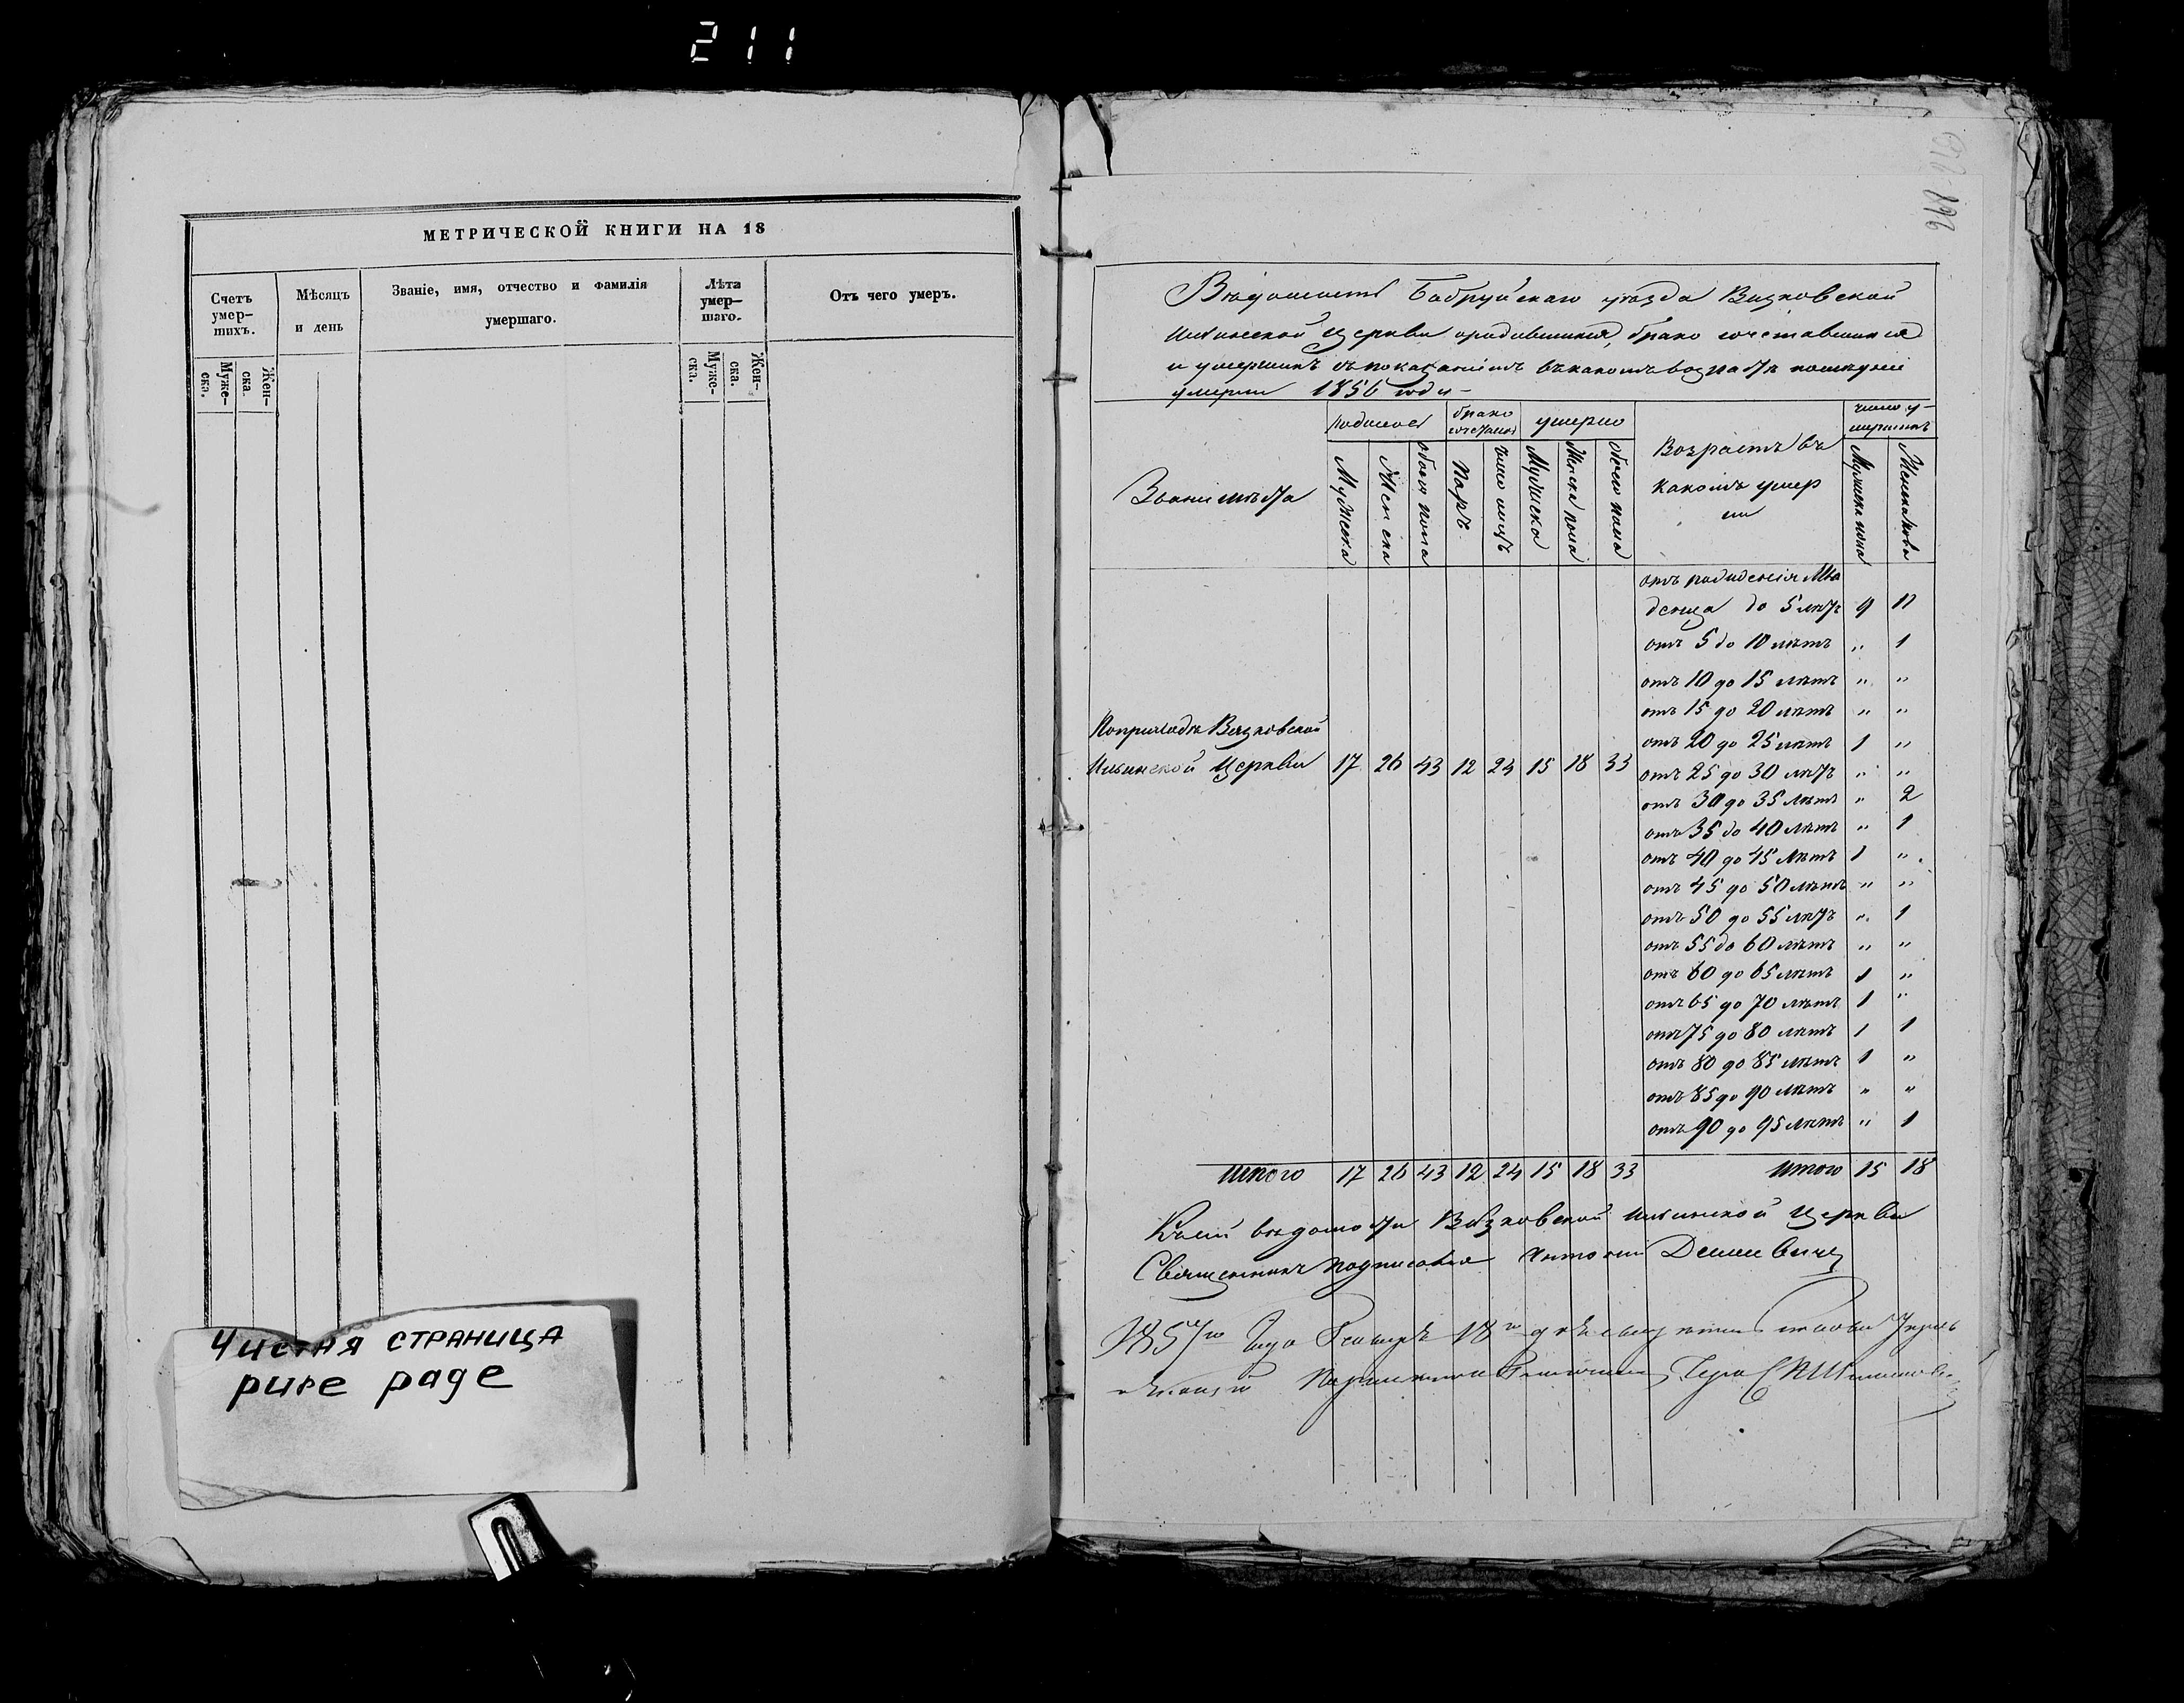 211
МЕТРИЧЕСКОЙ КНИГИ НА 18
Счетъ умер-шихъ.
Муже-ска.
Жен-ска
Мѣсяцъ и день
Званіе, имя, отчество и фамилія умершаго.
Лѣта умер-шаго.
Муже-ска.
Жен-ска.
Отъ чего умеръ.
Чистая страница
pure page
Вѣдомость Бобруйскаго уѣзда Вязковской
Ильинской Церкви ородившихся, брако сочетавшихся
и умершихъ съ показаніемъ въ какомъ возрастѣ послѣдніе
умерли 1856 года
Званіе мѣста
родилось
Мужеска
Женска
обоего пола
брако сочетанія
Паръ
число лицъ
умерло
Мужеска
Женска пола
обоего пола
Возрастъ въ
какомъ умер
ли
число у-
мершихъ
Мужеска пола
Женска пола
отъ рожденія Мла
денца до 5 лѣтъ 9 11
отъ 5 до 10 лѣтъ „ 1
отъ 10 до 15 лѣтъ „ „
отъ 15 до 20 лѣтъ „ „
отъ 20 до 25 лѣтъ 1 „
отъ 25 до 30 лѣтъ „ „
отъ 30 до 35 лѣтъ „ 2
отъ 35 до 40 лѣтъ „ 1
отъ 40 до 45 лѣтъ 1 „
отъ 45 до 50 лѣтъ „ „
отъ 50 до 55 лѣтъ „ 1
отъ 55 до 60 лѣтъ „ „
отъ 60 до 65 лѣтъ 1 „
отъ 65 до 70 лѣтъ 1 „
отъ 75 до 80 лѣтъ 1 1
отъ 80 до 85 лѣтъ 1 „
отъ 85 до 90 лѣтъ „ „
отъ 90 до 95 лѣтъ „ 1
По приходѣ Вязковской
Ильинской Церкви 17 26 43 12 24 15 18 33
Итого 17 26 43 12 24 15 18 33 Итого 15 18
Къ сей вѣдомости Вязковской Ильинской Церкви
Священникъ подписался Антоній
1857 года 18